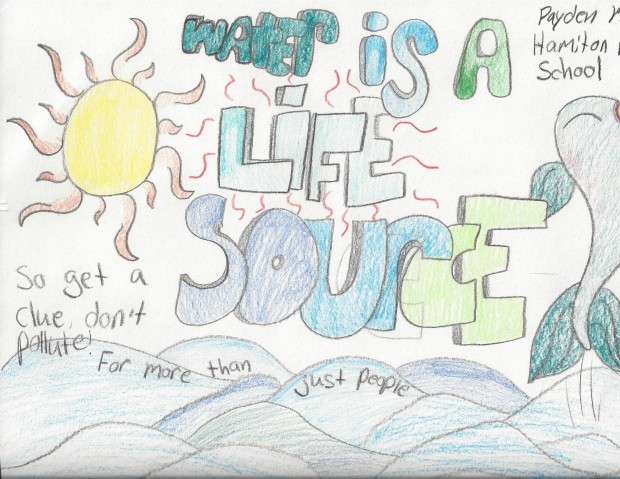 WATER IS A
LIFE
SOURCE
Payden
Hamilton
School
So get a
clue, don't
pollute!
For more than
just people